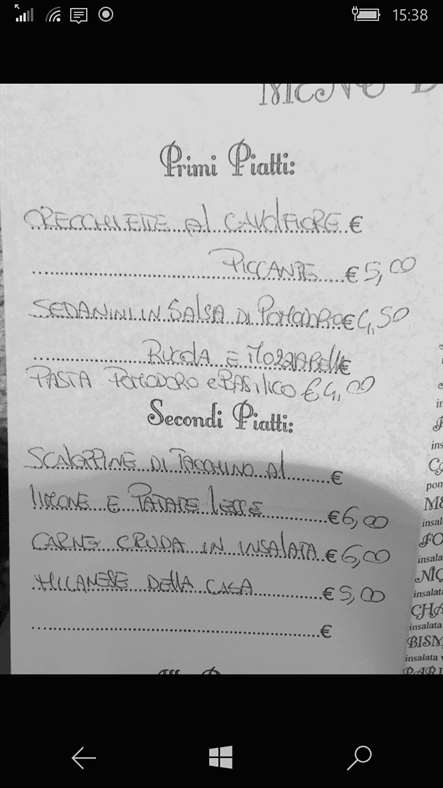 15:38
MENÙ D
Primi Piatti:
ORECCHIETTE Al CAVOLFIORE €
PICCANTE € 5,00
SEDANINI IN SALSA DI POMODRO € 4,50
RUCOLA E MOZZARELLA €
PASTA POMODORO e BASILICO € 4,00
Secondi Piatti:
SCALOPPINE DI TACCHINO Al €
LIMONE E PATATE LESSE € 6,00
CARNE CRUDA IN INSALATA € 6,00
MILANESE DELLA CASA € 5,00
€
insalata
FO
insalata
NIC
insalata
CHA
insalata
BISM
insalata